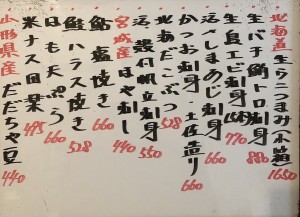 北海道生ウニつまみ(本箱)1650
生バチ鮪トロ刺身 880
生ぼたんエビ刺身 770
活〆しまあじ刺身 660
かつお刺身・土佐造り 660
活帆立刺身 550
北海だこぶつ 528
宮城産ほや刺し 440
鮎塩焼き 660
鮭ハラス焼き 528
はも天ぷら 660
米ナス田楽 495
山形県産だだちゃ豆 440